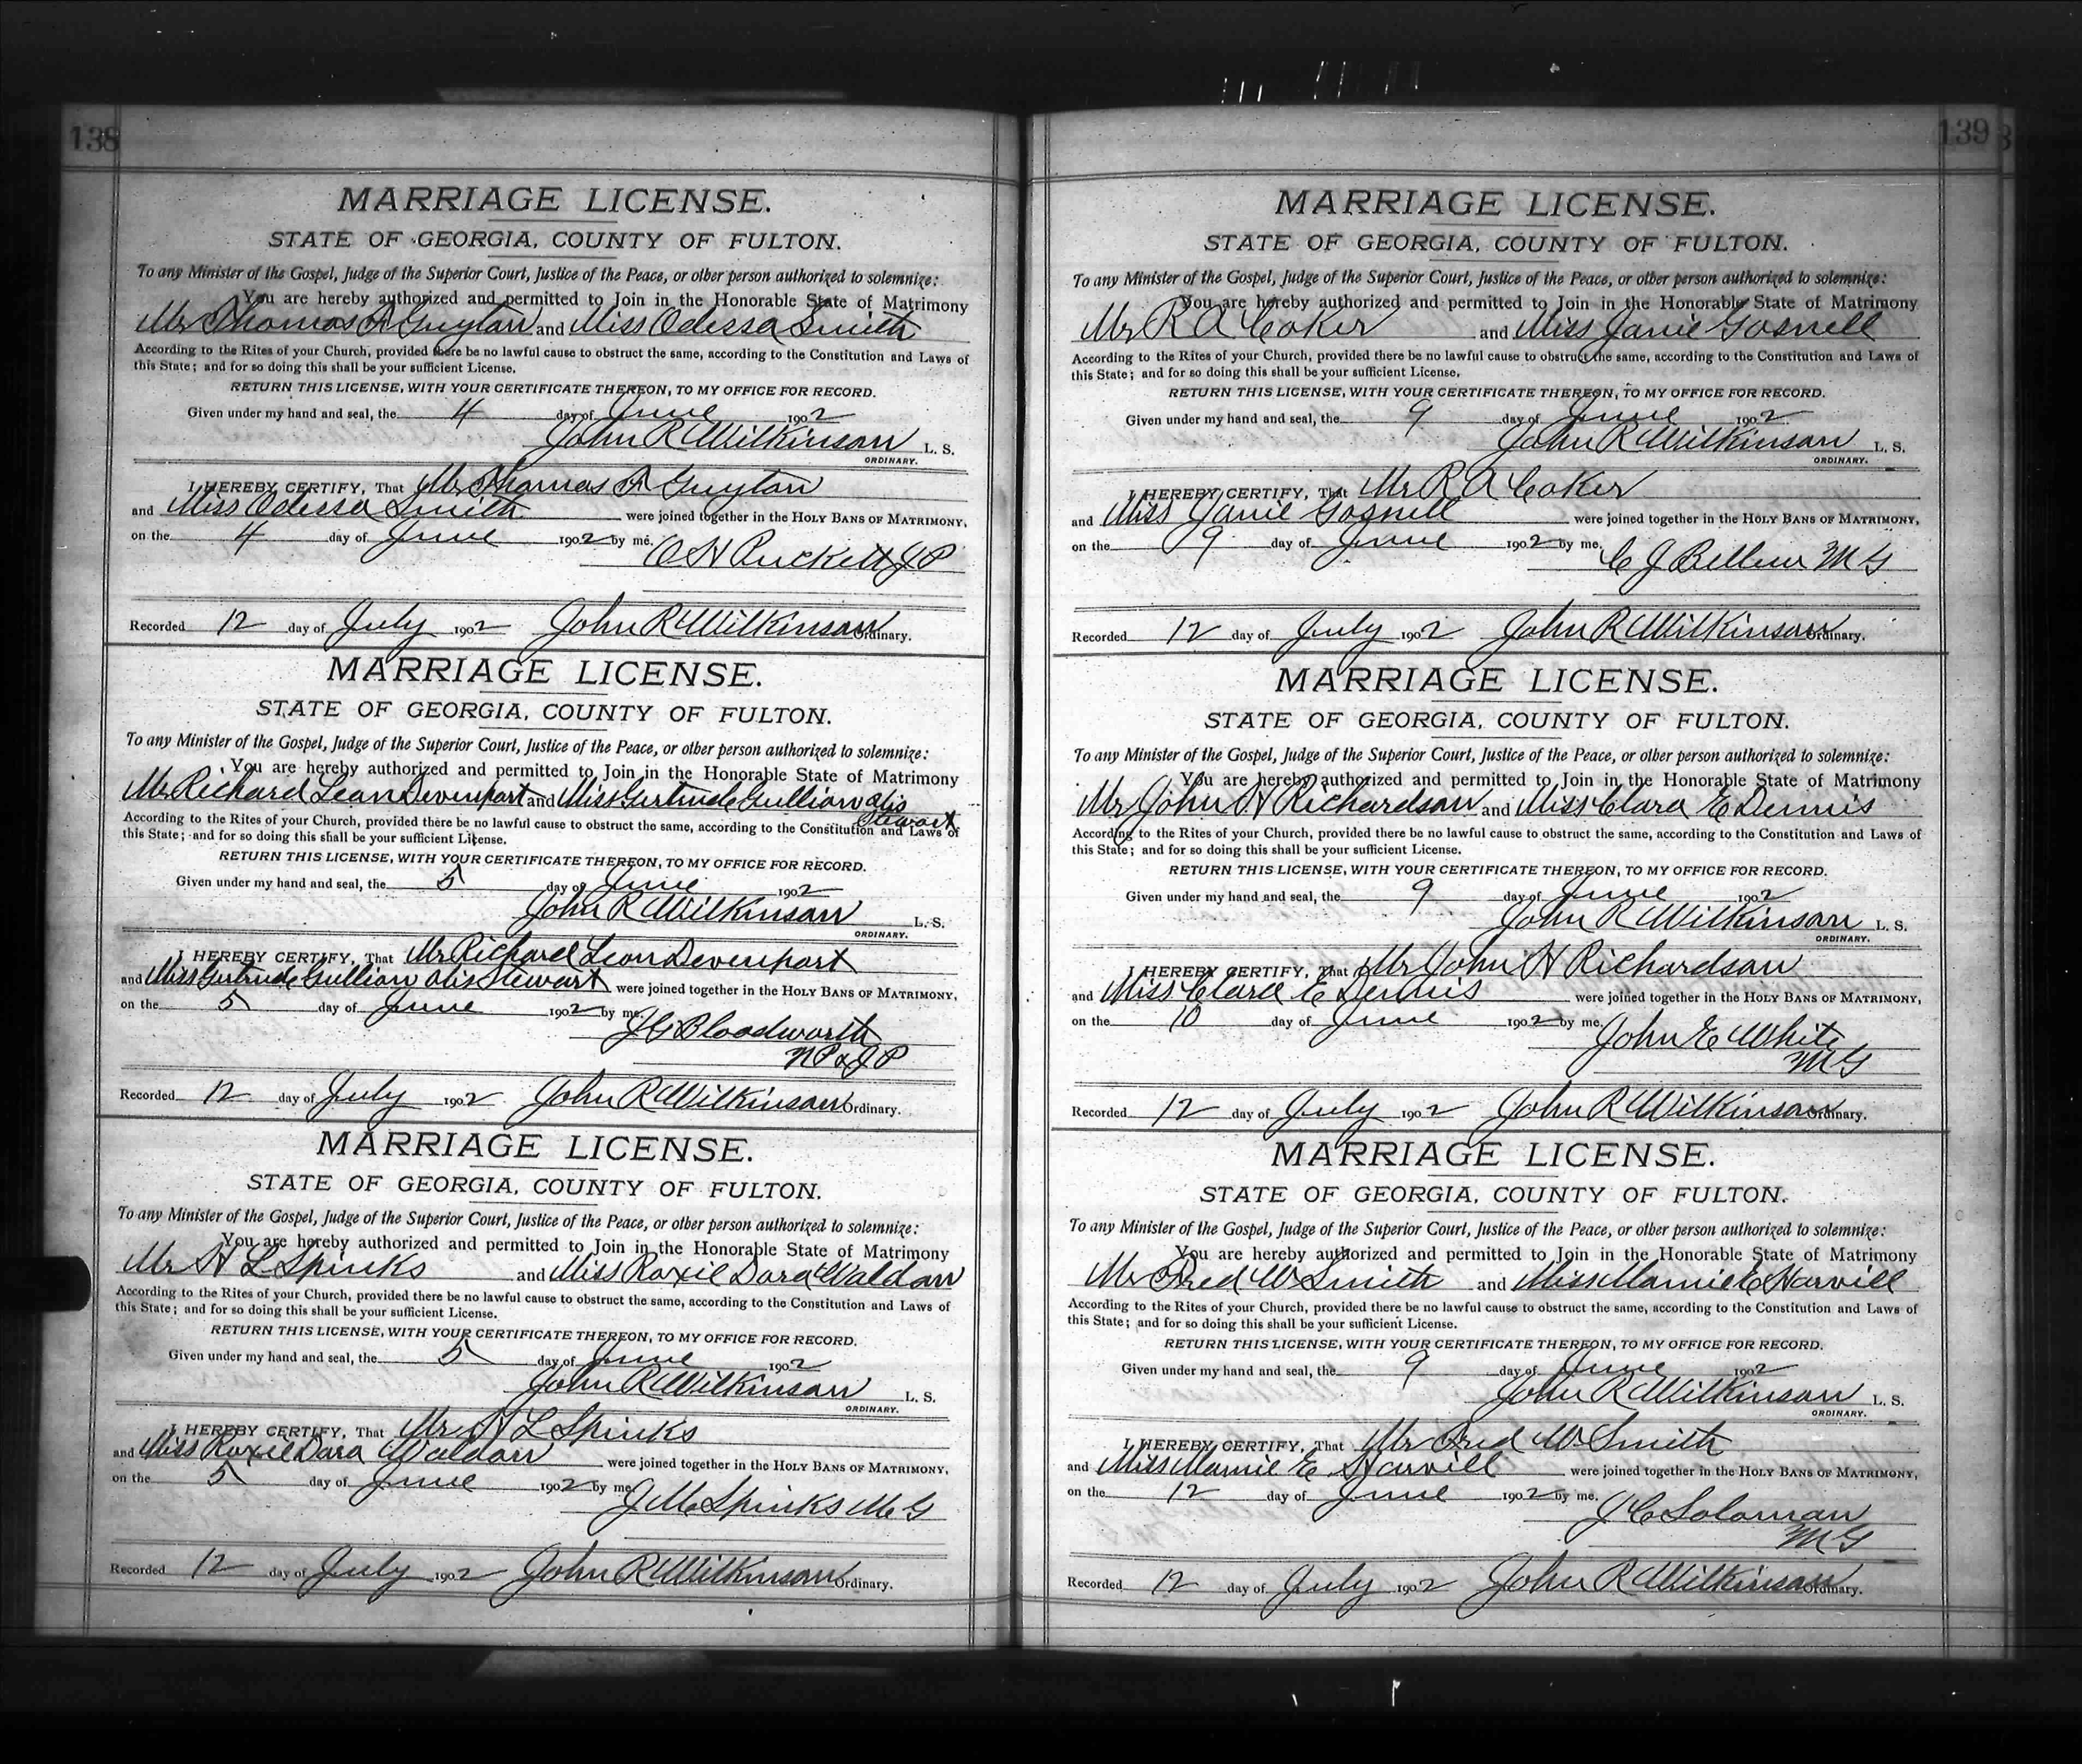 138
MARRIAGE LICENSE.
STATE OF GEORGIA, COUNTY OF FULTON.
To any Minister of the Gospel, Judge of the Superior Court, Justice of the Peace, or other person authorized to solemnize:
You are hereby authorized and permitted to Join in the Honorable State of Matrimony
Mr Thomas A Guyton and Miss Odessa Smith
According to the Rites of your Church, provided there be no lawful cause to obstruct the same, according to the Constitution and Laws of
this State; and for so doing this shall be your sufficient License.
RETURN THIS LICENSE, WITH YOUR CERTIFICATE THEREON, TO MY OFFICE FOR RECORD.
Given under my hand and seal, the 4 day of June 1902
John R Wilkinson L. S.
ORDINARY.
I HEREBY CERTIFY, That Mr Thomas A Guyton
and Miss Odessa Smith were joined together in the HOLY BANS OF MATRIMONY,
on the 4 day of June 1902 by me.
O H Puckett J P
Recorded 12 day of July 1902 John R Wilkinson Ordinary.
MARRIAGE LICENSE.
STATE OF GEORGIA, COUNTY OF FULTON.
To any Minister of the Gospel, Judge of the Superior Court, Justice of the Peace, or other person authorized to solemnize:
You are hereby authorized and permitted to Join in the Honorable State of Matrimony
Mr Richard Leon Devenport and Miss Gertrude Gullian alis
Stewart
According to the Rites of your Church, provided there be no lawful cause to obstruct the same, according to the Constitution and Laws of
this State; and for so doing this shall be your sufficient License.
RETURN THIS LICENSE, WITH YOUR CERTIFICATE THEREON, TO MY OFFICE FOR RECORD.
Given under my hand and seal, the 5 day of June 1902
John R Wilkinson L. S.
ORDINARY.
I HEREBY CERTIFY, That Mr Richard Leon Devenport
and Miss Gertrude Gullian alis Stewart were joined together in the HOLY BANS OF MATRIMONY,
on the 5 day of June 1902 by me.
J G Bloodworth
N P & J P
Recorded 12 day of July 1902 John R Wilkinson Ordinary.
MARRIAGE LICENSE.
STATE OF GEORGIA, COUNTY OF FULTON.
To any Minister of the Gospel, Judge of the Superior Court, Justice of the Peace, or other person authorized to solemnize:
You are hereby authorized and permitted to Join in the Honorable State of Matrimony
Mr H L Spinks and Miss Roxie Dora Waldon
According to the Rites of your Church, provided there be no lawful cause to obstruct the same, according to the Constitution and Laws of
this State; and for so doing this shall be your sufficient License.
RETURN THIS LICENSE, WITH YOUR CERTIFICATE THEREON, TO MY OFFICE FOR RECORD.
Given under my hand and seal, the 5 day of June 1902
John R Wilkinson L. S.
ORDINARY.
I HEREBY CERTIFY, That Mr H L Spinks
and Miss Roxie Dora Waldon were joined together in the HOLY BANS OF MATRIMONY,
on the 5 day of June 1902 by me
J M Spinks M G
Recorded 12 day of July 1902 John R Wilkinson Ordinary.
139
MARRIAGE LICENSE.
STATE OF GEORGIA, COUNTY OF FULTON.
To any Minister of the Gospel, Judge of the Superior Court, Justice of the Peace, or other person authorized to solemnize:
You are hereby authorized and permitted to Join in the Honorable State of Matrimony
Mr R A Coker and Miss Janie Gosnell
According to the Rites of your Church, provided there be no lawful cause to obstruct the same, according to the Constitution and Laws of
this State; and for so doing this shall be your sufficient License.
RETURN THIS LICENSE, WITH YOUR CERTIFICATE THEREON, TO MY OFFICE FOR RECORD.
Given under my hand and seal, the 9 day of June 1902
John R Wilkinson L. S.
ORDINARY.
I HEREBY CERTIFY, That Mr R A Coker
and Miss Janie Gosnell were joined together in the HOLY BANS OF MATRIMONY,
on the 9 day of June 1902 by me.
C J M G
Recorded 12 day of July 1902 John R Wilkinson Ordinary.
MARRIAGE LICENSE.
STATE OF GEORGIA, COUNTY OF FULTON.
To any Minister of the Gospel, Judge of the Superior Court, Justice of the Peace, or other person authorized to solemnize:
You are hereby authorized and permitted to Join in the Honorable State of Matrimony
Mr John H Richardson and Miss Clara E Dennis
According to the Rites of your Church, provided there be no lawful cause to obstruct the same, according to the Constitution and Laws of
this State; and for so doing this shall be your sufficient License.
RETURN THIS LICENSE, WITH YOUR CERTIFICATE THEREON, TO MY OFFICE FOR RECORD.
Given under my hand and seal, the 9 day of June 1902
John R Wilkinson L. S.
ORDINARY.
I HEREBY CERTIFY, That Mr John H Richardson
and Miss Clara E Dennis were joined together in the HOLY BANS OF MATRIMONY,
on the 10 day of June 1902 by me.
John E White
M G
Recorded 12 day of July 1902 John R Wilkinson Ordinary.
MARRIAGE LICENSE.
STATE OF GEORGIA, COUNTY OF FULTON.
To any Minister of the Gospel, Judge of the Superior Court, Justice of the Peace, or other person authorized to solemnize:
You are hereby authorized and permitted to Join in the Honorable State of Matrimony
Mr Fred W Smith and Miss Mamie E Harvill
According to the Rites of your Church, provided there be no lawful cause to obstruct the same, according to the Constitution and Laws of
this State; and for so doing this shall be your sufficient License.
RETURN THIS LICENSE, WITH YOUR CERTIFICATE THEREON, TO MY OFFICE FOR RECORD.
Given under my hand and seal, the 9 day of June 1902
John R Wilkinson L. S.
ORDINARY.
I HEREBY CERTIFY, That Mr Fred W Smith
and Miss Mamie E Harvill were joined together in the HOLY BANS OF MATRIMONY,
on the 12 day of June 1902 by me.
J C Soloman
M G
Recorded 12 day of July 1902 John R Wilkinson Ordinary.